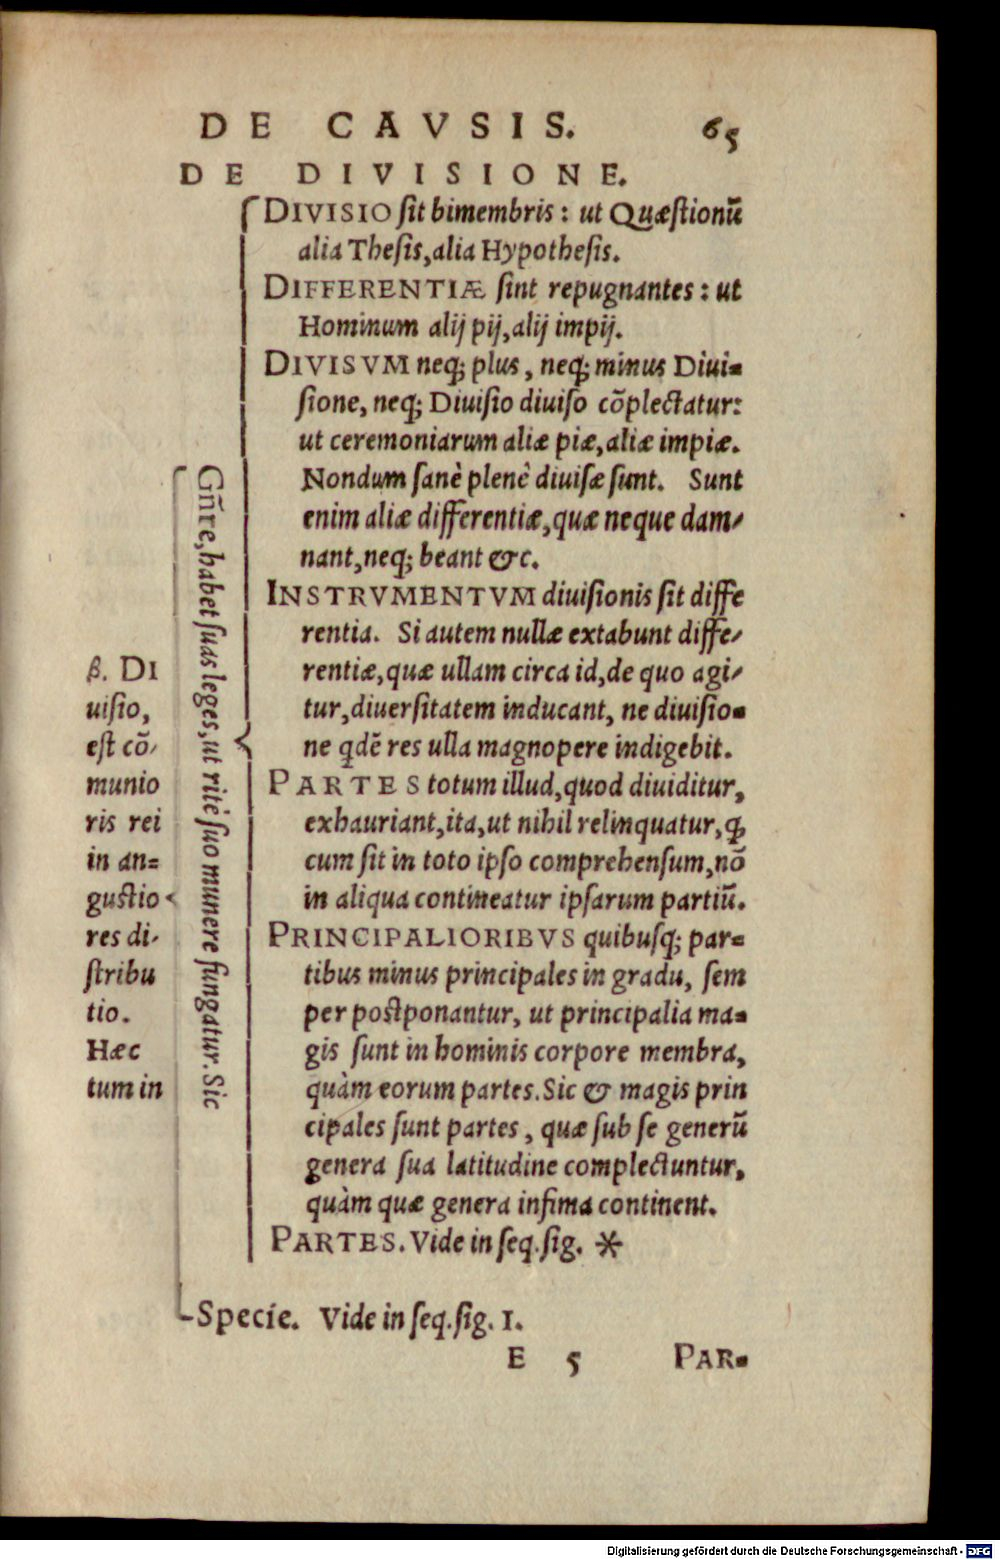 DE CAVSIS. 65
DE DIVISIONE.
β. DI
uisio,
est cõ-
munio
ris rei
in an=
gustio
res di-
stribu
tio.
Hæc
tum in
Gñre, habet suas leges, ut ritè suo munere fungatur. Sic
DIVISIO sit bimembris: ut Quæstionũ
alia Thesis, alia Hypothesis.
DIFFERENTIÆ sint repugnantes: ut
Hominum alij pij, alij impij.
DIVISVM neq; plus, neq; minus Diui=
sione, neq; Diuisio diuiso cõplectatur:
ut ceremoniarum aliæ piæ, aliæ impiæ.
Nondum sanè plenè diuisæ sunt. Sunt
enim aliæ differentiæ, quæ neque dam-
nant, neq; beant &c.
INSTRVMENTVM diuisionis sit diffe
rentia. Si autem nullæ extabunt diffe-
rentiæ, quæ ullam circa id, de quo agi-
tur, diuersitatem inducant, ne diuisio=
ne qdẽ res ulla magnopere indigebit.
PARTES totum illud, quod diuiditur,
exhauriant, ita, ut nihil relinquatur, ꝙ
cum sit in toto ipso comprehensum, nõ
in aliqua contineatur ipsarum partiũ.
PRINCIPALIORIBVS quibusq; par=
tibus minus principales in gradu, sem
per postponantur, ut principalia ma=
gis sunt in hominis corpore membra,
quàm eorum partes. Sic & magis prin
cipales sunt partes, quæ sub se generũ
genera sua latitudine complectuntur,
quàm quæ genera infima continent.
PARTES. Vide in seq. sig. *
Specíe. Vide in seq. sig. 1.
E 5 PAR=
Digitalisierung gefördert durch die Deutsche Forschungsgemeinschaft - DFG